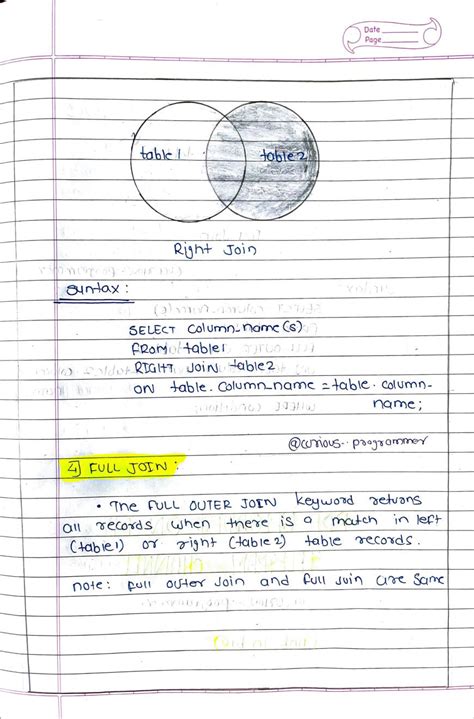 Date
Page
table 1 table 2
Right Join
Syntax:
SELECT column_name(s)
FROM table1
RIGHT JOIN table2
ON table.column_name = table.column-
name;
@curious..programmer
4) FULL JOIN:
• The FULL OUTER JOIN keyword returns
all records when there is a match in left
(table1) or right (table2) table records.
note: full outer join and full join are same